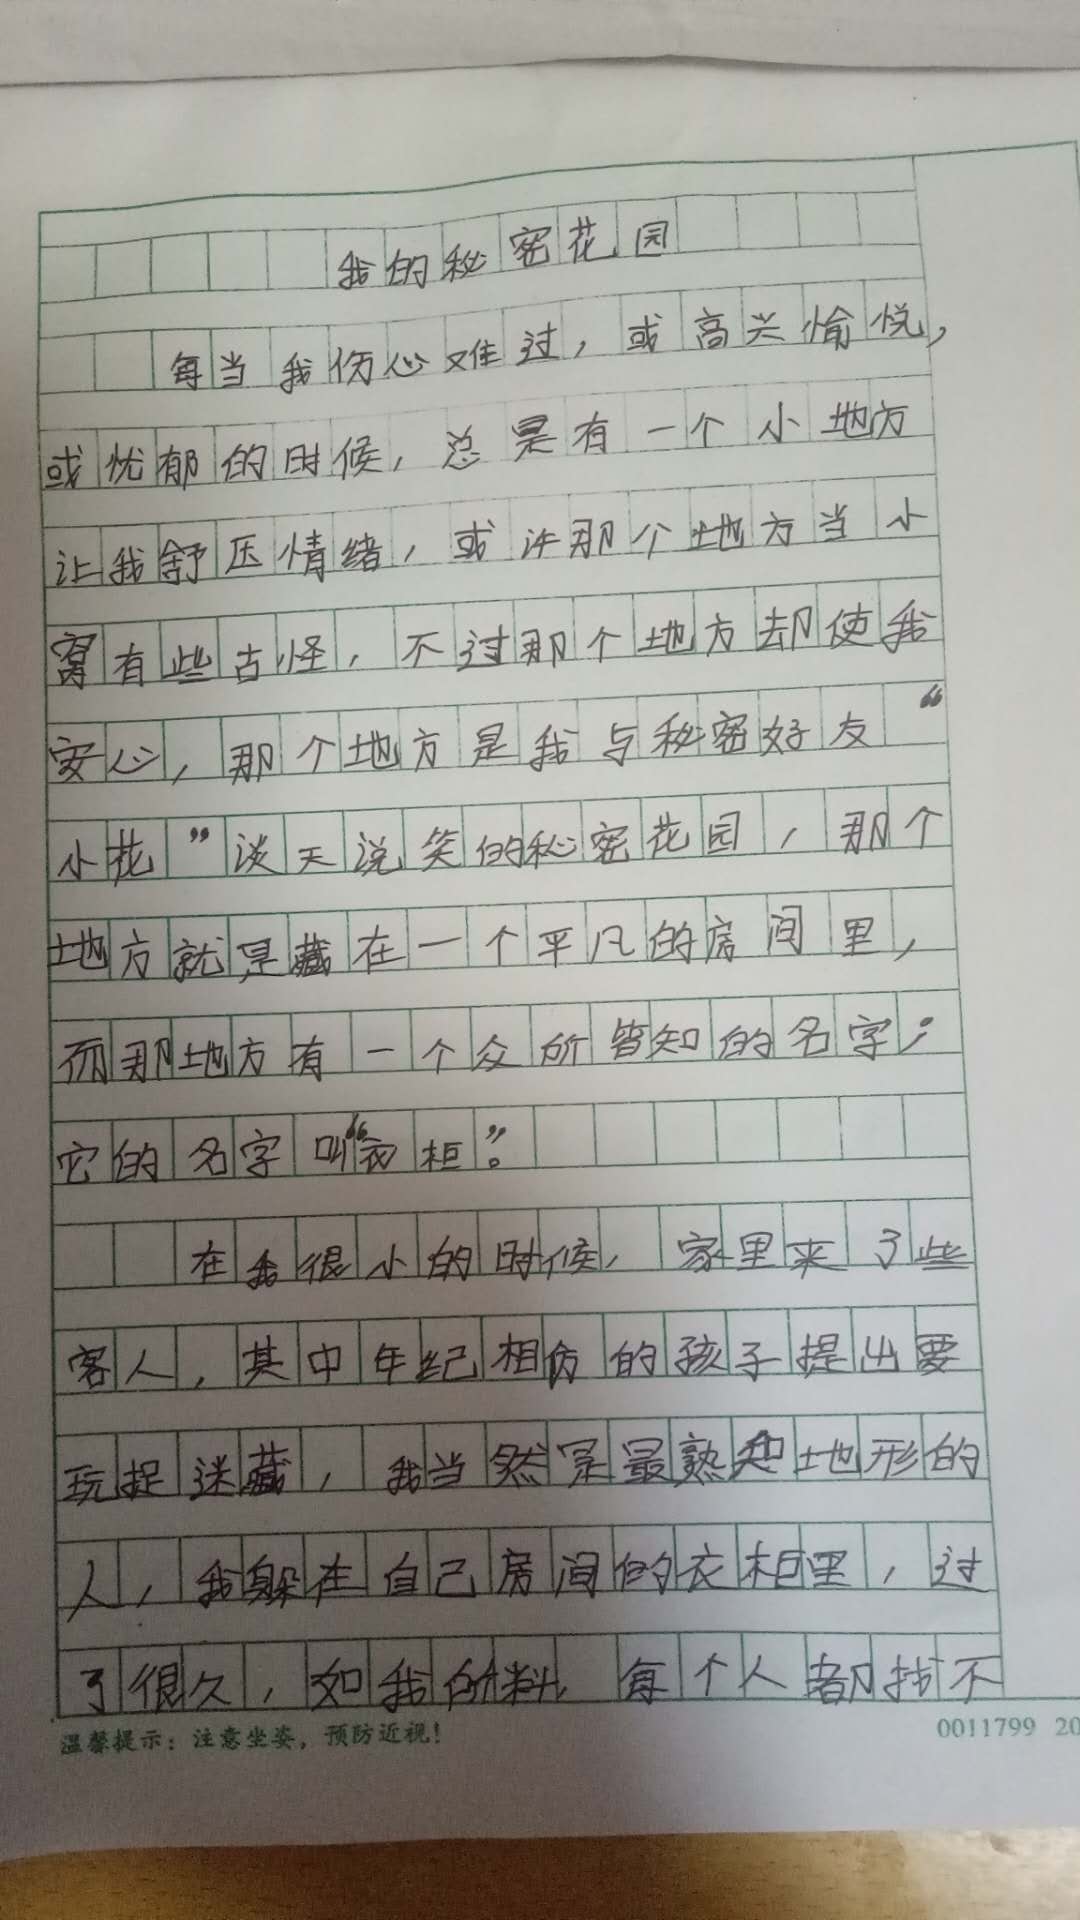 我的秘密花园
每当我伤心难过，或高兴愉悦，
或忧郁的时候，总是有一个小地方
让我舒压情绪，或许那个地方当小
窝有些古怪，不过那个地方却使我
安心，那个地方是我与秘密好友“
小花”谈天说笑的秘密花园，那个
地方就是藏在一个平凡的房间里，
而那地方有一个众所皆知的名字；
它的名字叫“衣柜”。
在我很小的时候，家里来了些
客人，其中年纪相仿的孩子提出要
玩捉迷藏，我当然是最熟知地形的
人，我躲在自己房间的衣柜里，过
了很久，如我所料，每个人都找不
温馨提示：注意坐姿，预防近视！
0011799 20